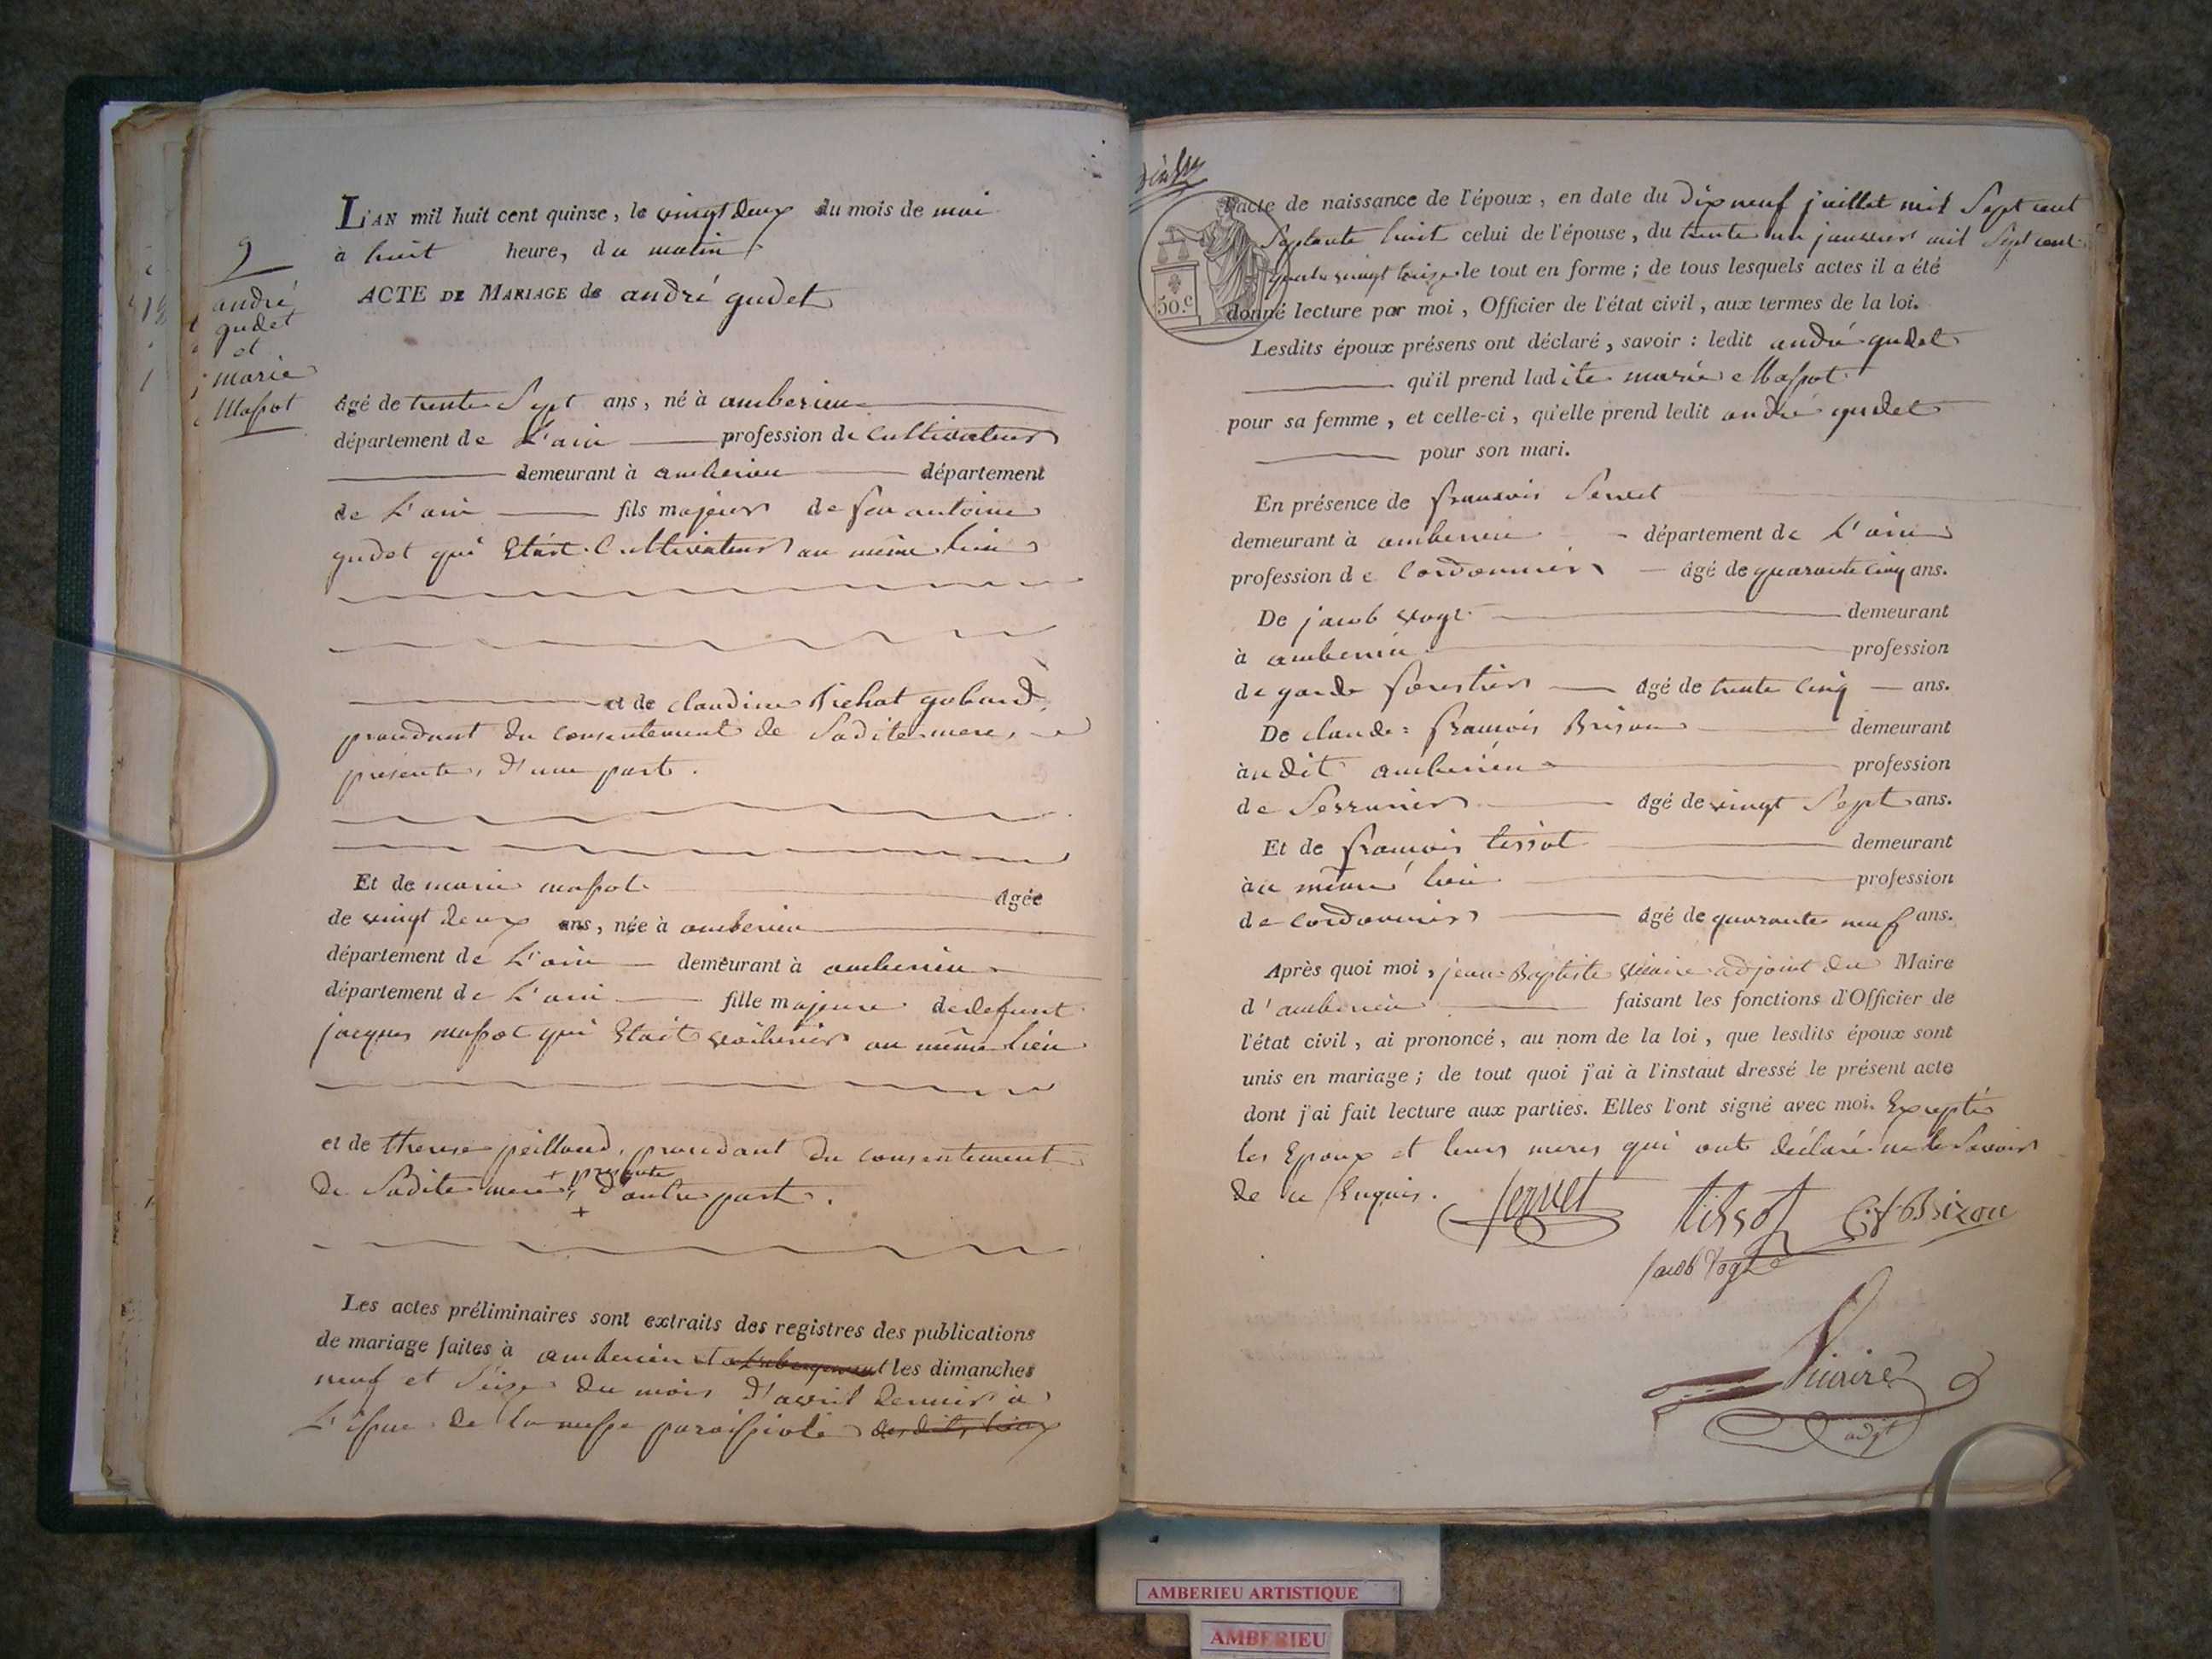 L'AN mil huit cent quinze, le vingt deux du mois de mai
à huit heure, du matin
9
ACTE DE MARIAGE de andré gudet
andré
gudet
et
marie
Massot
âgé de trente Sept ans, né à amberieu
département de L'ain profession de Cultivateur
demeurant à amberieu département
de L'ain fils majeur de feu antoine
gudet qui Etait Cultivateur au même lieu
et de claudine Pichat gobard,
procedant du consentement de Sadite mere,
presente, d'une part.
Et de marie massot âgée
de vingt deux ans, née à amberieu
département de L'ain demeurant à amberieu
département de L'ain fille majeure de defunt
jacques massot qui Etait voiturier au même lieu
et de therese peilloud, procedant du consentement
+ presente
de Sadite mere, d'autre part.
+
Les actes préliminaires sont extraits des registres des publications
de mariage faites à amberieu les dimanches
neuf et Seize du mois d'avril dernier à
L'issue de la messe paroissiale des dits lieux
l'acte de naissance de l'époux, en date du dix neuf juillet mil Sept cent
Septante huit celui de l'épouse, du trente un janvier mil Sept cent
quatre vingt treize le tout en forme; de tous lesquels actes il a été
50.c
donné lecture par moi, Officier de l'état civil, aux termes de la loi.
Lesdits époux présens ont déclaré, savoir : ledit andré gudet
qu'il prend ladite marie Massot
pour sa femme, et celle-ci, qu'elle prend ledit andré gudet
pour son mari.
En présence de francois Servet
demeurant à amberieu département de L'ain
profession de Cordonnier âgé de quarante cinq ans.
De jacob vogt demeurant
à amberieu profession
de garde forestier âgé de trente cinq ans.
De claude = francois Brison demeurant
àudit amberieu profession
de Serrurier âgé de vingt Sept ans.
Et de francois tissot demeurant
àu même lieu profession
de cordonnier âgé de quarante neuf ans.
Après quoi moi, jean-Baptiste vicaire adjoint du Maire
d'amberieu faisant les fonctions d'Officier de
l'état civil, ai prononcé, au nom de la loi, que lesdits époux sont
unis en mariage; de tout quoi j'ai à l'instaut dressé le présent acte
dont j'ai fait lecture aux parties. Elles l'ont signé avec moi. Exceptés
les Epoux et leurs meres qui ont déclaré ne le Savoir
de ce Enquis.
Servet tissot C. f. Bizou
jacob Vogt
Vicaire
adjt
AMBERIEU ARTISTIQUE
AMBERIEU